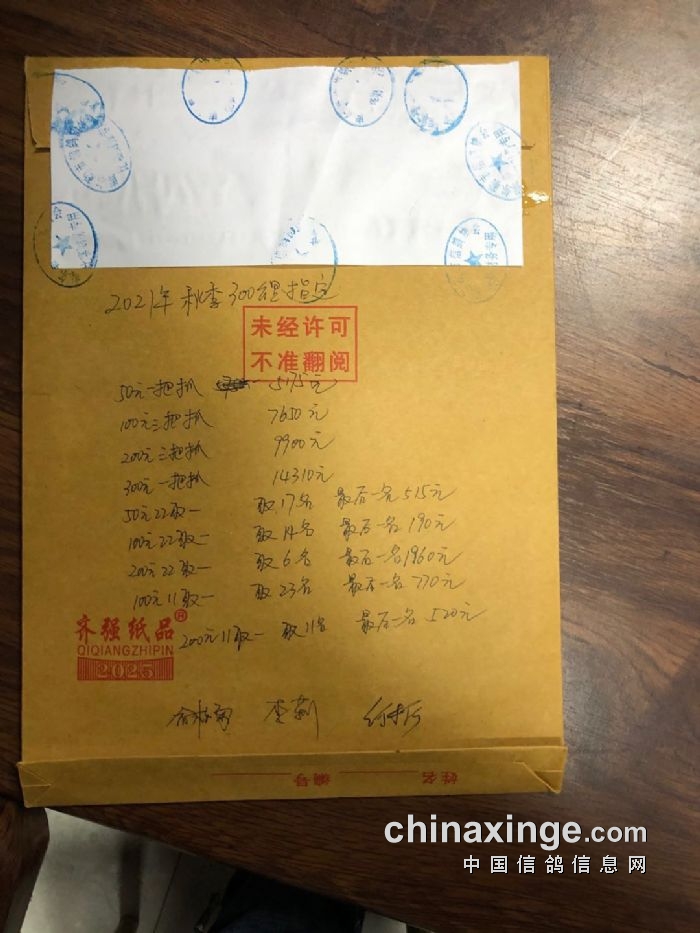 2021年秋季300公里指定
未经许可
不准翻阅
50元一把抓 5175元
100元三把抓 7650元
200元三把抓 9900元
300元一把抓 14310元
50元22取一 取17名 最后一名515元
100元22取一 取14名 最后一名190元
200元22取一 取6名 最后一名1960元
100元11取一 取23名 最后一名770元
200元11取一 取11名 最后一名520元
齐强纸品
QIQIANGZHIPIN
2025
姓名 编号
chinaxinge.com
中国信鸽信息网